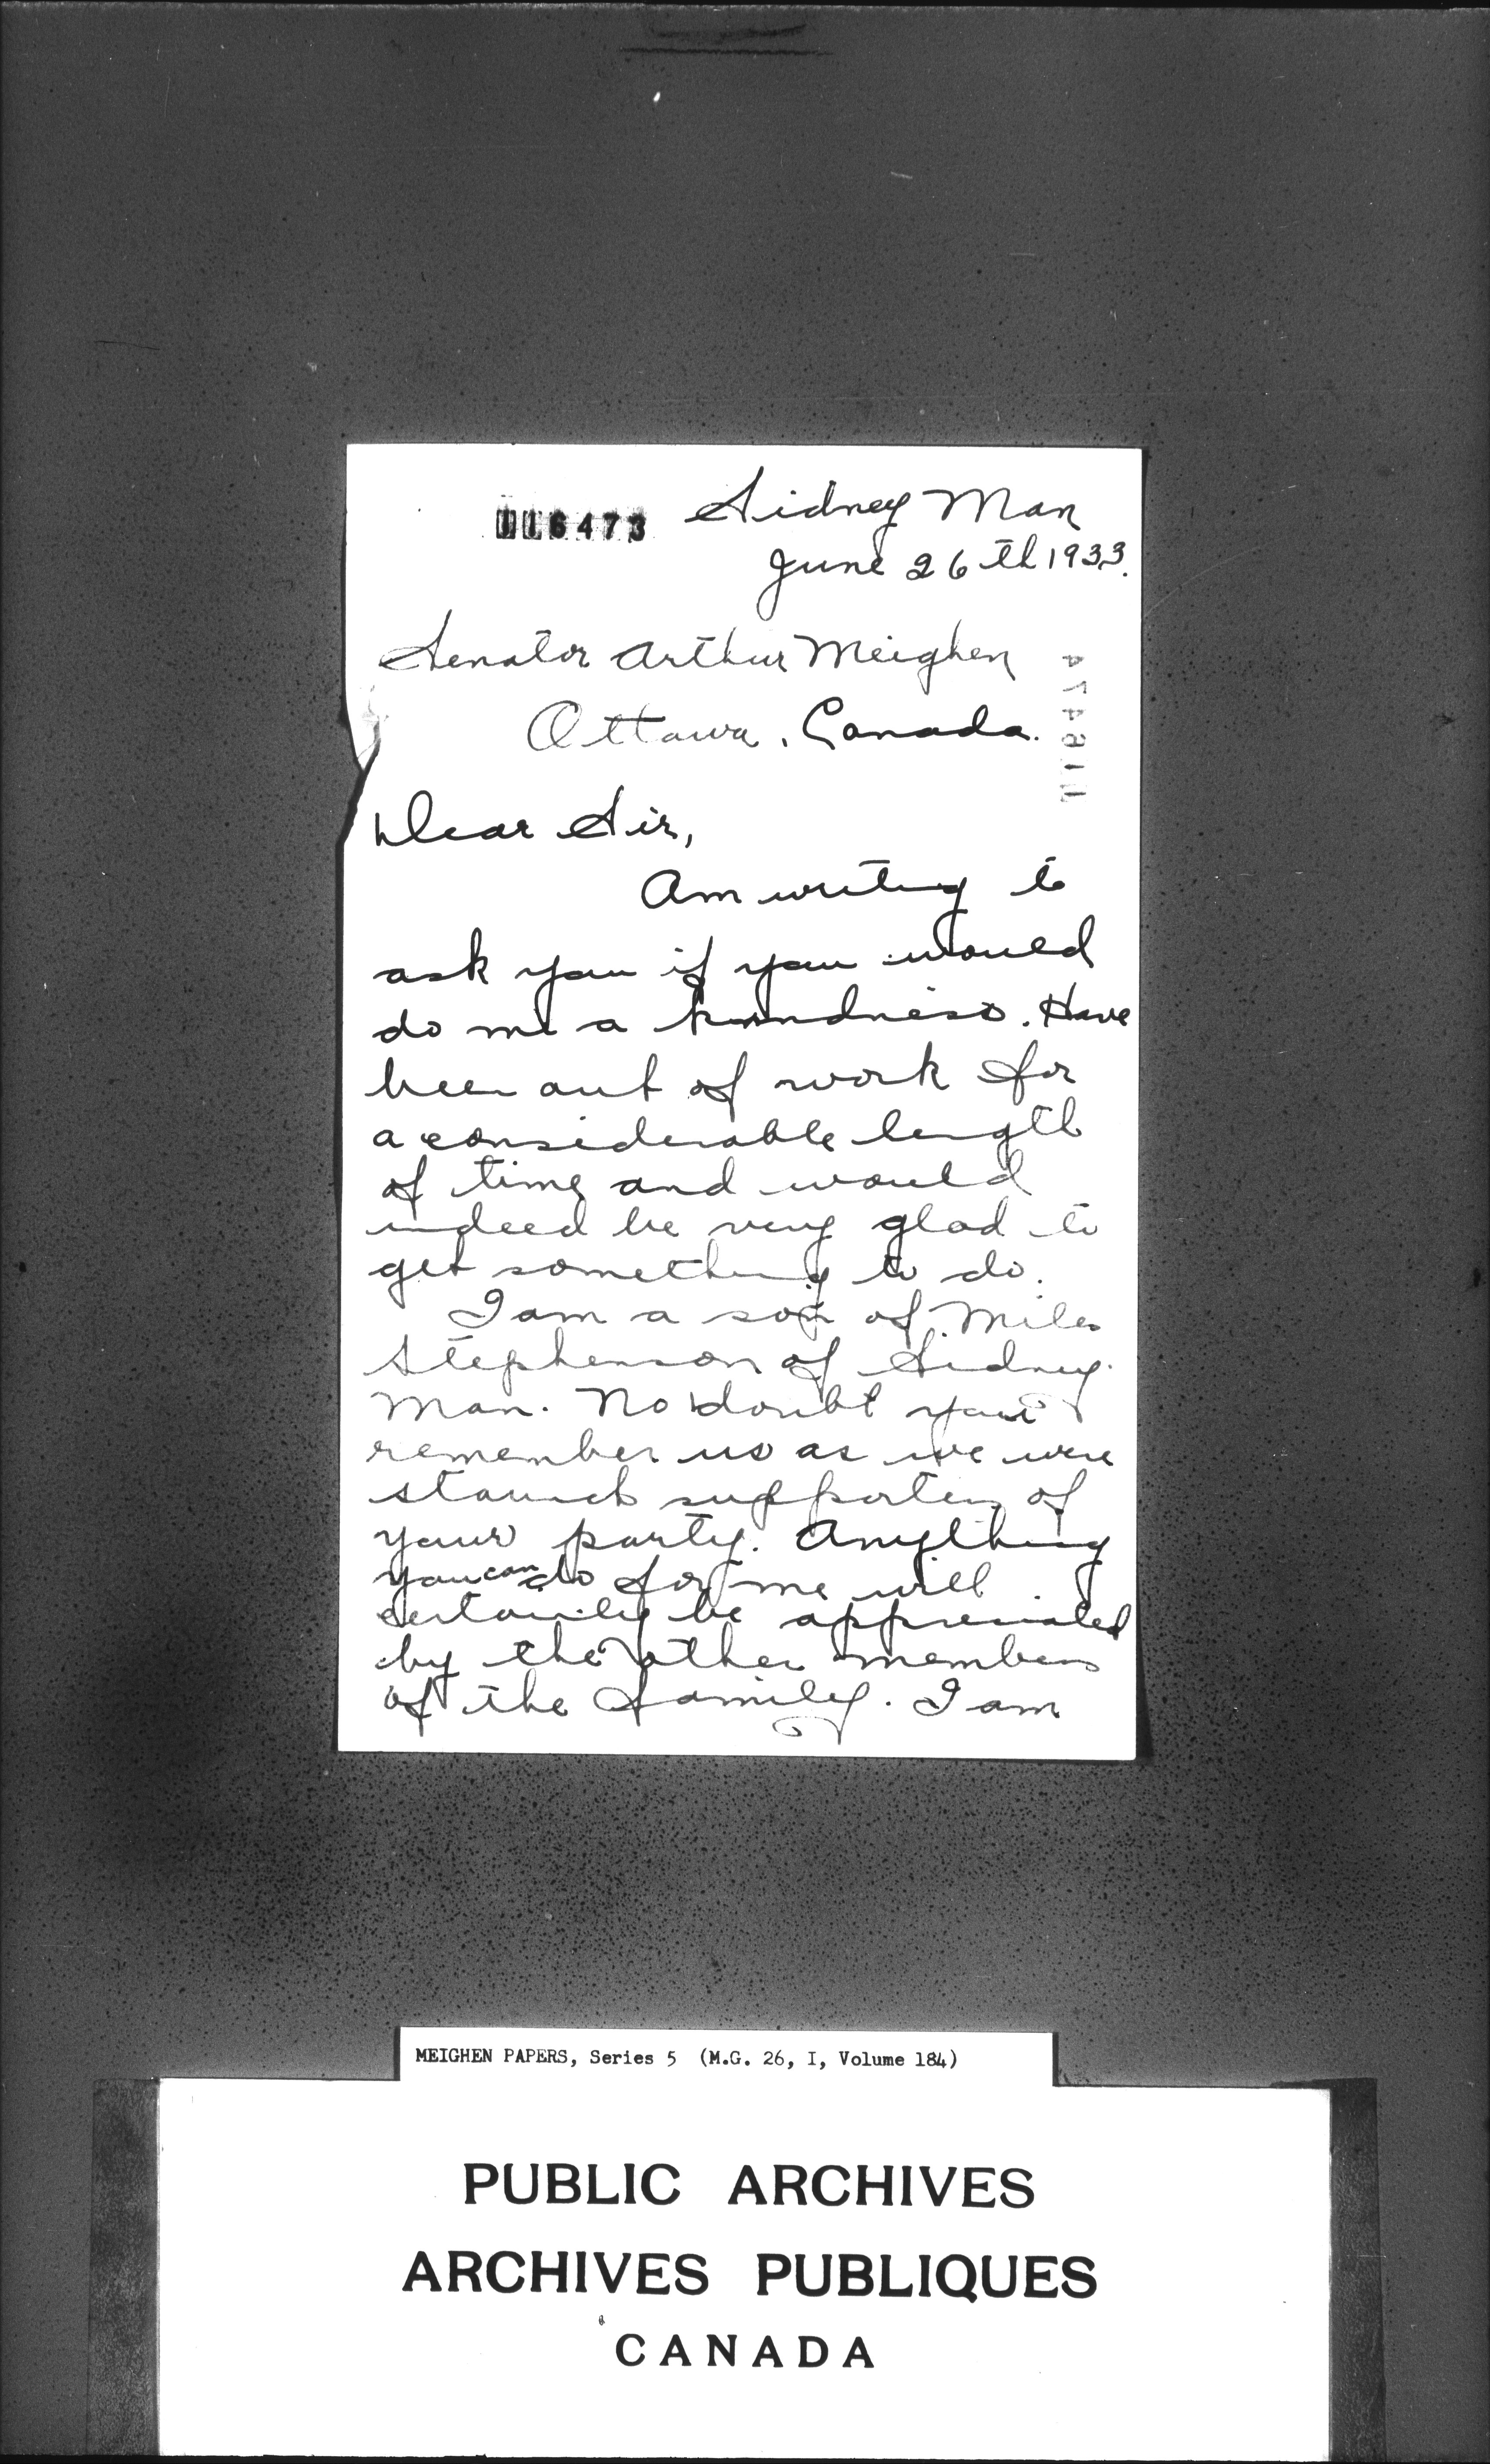 116473
Sidney Man
June 26th 1933.
Senator Arthur Meighen
Ottawa, Canada.
Dear Sir,
Am writing to
ask you if you would
do me a kindness. Have
been out of work for
a considerable length
of time and would
indeed be very glad to
get something to do.
I am a son of Miles
Stephenson of Sidney
Man. No doubt you
remember us as we were
staunch supporters of
your party. Anything
you can do for me will
certainly be appreciated
by the other members
of the family. I am
MEIGHEN PAPERS, Series 5 (M.G. 26, I, Volume 184)
PUBLIC ARCHIVES
ARCHIVES PUBLIQUES
CANADA